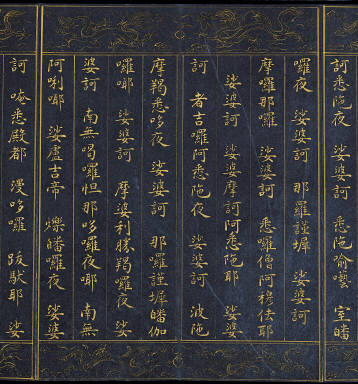 訶悉陁夜　娑婆訶　悉陁喻藝　室皤
囉夜　娑婆訶　那囉謹墀　娑婆訶
摩囉那囉　娑婆訶　悉囉僧阿穆佉耶
娑婆訶　娑婆摩訶阿悉陁耶　娑婆
訶　者吉囉阿悉陁夜　娑婆訶　波陁
摩羯悉哆夜　娑婆訶　那囉謹墀皤伽
囉耶　娑婆訶　摩婆利勝羯囉夜　娑
婆訶　南無喝囉怛那哆囉夜耶　南無
阿唎耶　娑盧吉帝　爍皤囉夜　娑婆
訶　唵悉殿都　漫哆囉　跋馱耶　娑